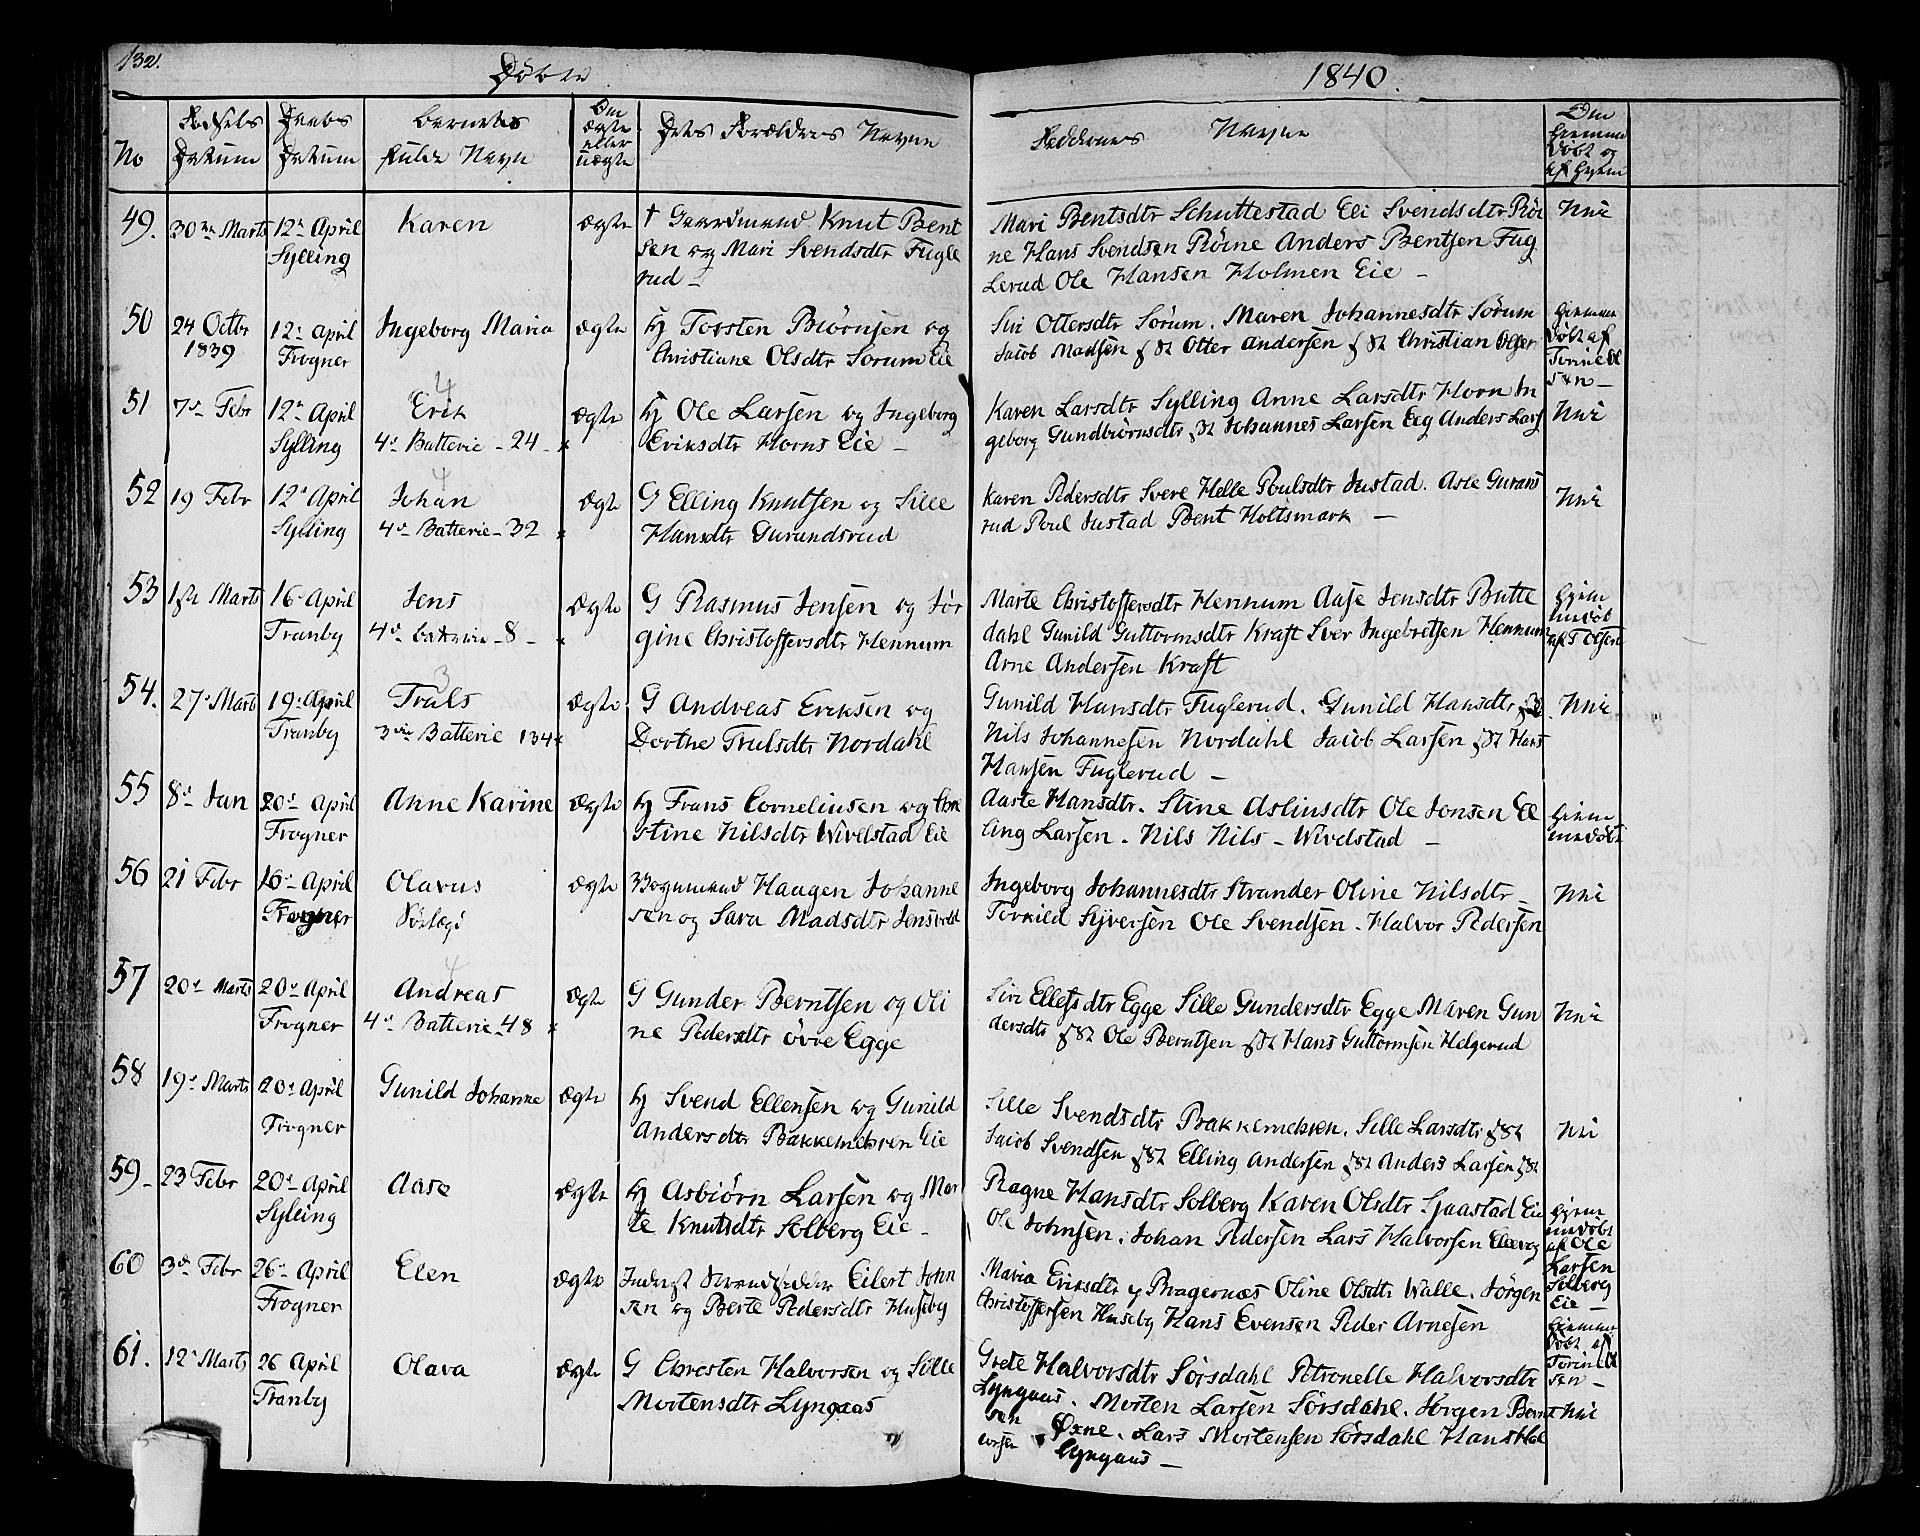 132.
Döbte
1840.
No
Födsels Datum
Daabs Datum
Barnets fulde Navn
Om ægte eller uægte
Dets Forældres Navne
Faddernes Navne
Om hiemmedöbt og af hvem
49. 30te Marts 12te April Sylling Karen ægte
† Gaardmand Knut Bent
sen og Mari Svendsdtr Fugle
rud –
Mari Bentsdtr Schuttestad Eli Svendsdtr Röi
ne Hans Svendsen Röine Anders Bentsen Fug
lerud Ole Hansen Holmen Eie –
Nei
50 24 Octbr 1839 12te April Frogner Ingeborg Maria ægte
Hj Torsten Biörnsen og
Christiane Olsdtr Sorum Eie
Siri Ottersdtr Sorum. Maren Johannesdtr Sörum
Jacob Madsen Otter Andersen Christian Olsen
hiemmedöbt af Torine Olsen –
51 7de Febr 12te April Sylling Erik ægte
4
4de Batterie – 24 – ×
Hj Ole Larsen og Ingeborg
Eriksdtr Horns Eie –
Karen Larsdtr Sylling Anne Larsdtr Horn In
geborg Gundbiörnsdtr Johannes Larsen Eeg Anders Lars
Nei
52 19 Febr 12te April Sylling Johan ægte
4
4de Batterie – 32 ×
G Elling Knutsen og Sille
Hansdtr Gurandsrud
Karen Pedersdtr Svere Helle Poulsdtr Justad. Asle Gurans
rud Poul Justad Bent Holtsmark –
Nei
53 1ste Marts 16 April Tranby Jens Ægte
4de batterie – 8 – ×
G Rasmus Jensen og Jör
gine Christoffersdtr Hennum
Marte Christoffersdtr Hennum Aase Jensdtr Butte
dahl Gunild Guttormsdtr Kraft Sver Ingebretsen Hennum
Arne Andersen Kraft
hjemmedöbt af T Olsen
54. 27de Marts 19de April Tranby Truls ægte
3
3die Batterie 134 ×
G Andreas Eriksen og
Dorthe Trulsdtr Nordahl
Gunild Hansdtr Fuglerud. Gunild Hansdtr
Nils Johannesen Nordahl Jacob Larsen Hans
Hansen Fuglerud –
Nei
55 8de Jan 20de April Frogner Anne Karine ægte
Hj Frans Corneliusen og Chri
stine Nilsdtr Wivelstad Eie
Aaste Hansdtr. Stine Aslinsdtr Ole Jonsen El
ling Larsen. Nils Nils – Wivelstad –
hiemmedöbt
56 21 Febr 16de April Frogner Olavus ægte
Haagen Johanne
sen og Sara Madsdtr Jensvold
Ingeborg Johannesdtr Strander Oline Nilsdtr –
Torkild Syversen Ole Svendsen. Halvor Pedersen
Nei
57 20de Marts 20de April Frogner Andreas ægte
4
4de Batterie – 48 ×
G Gunder Berntsen og Oli
ne Pedersdtr övre Egge
Siri Ellefsdtr Egge Sille Gundersdtr Egge Maren Gun
dersdtr Ole Berntsen Hans Guttormsen Helgerud
Nei
58 19de Marts 20de April Frogner Gunild Johanne ægte
Hj Svend Ellensen og Gunild
Andersdtr Bakkemehren Eie
Sille Svendsdtr Bakkemehren. Sille Larsdtr
Jacob Svendsen Elling Andersen Anders Larsen
Nei
59 – 23 Febr 20de April Sylling Aase ægte
Hj Asbiörn Larsen og Mar
te Knutsdtr Solberg Eie –
Ragne Hansdtr Solberg Karen Olsdtr Sjaastad Eie
Ole Johnsen. Johan Pedersen Lars Halvorsen
hjemmedöbt af Ole Larsen Solberg Eie –
60 3de Febr 26de April Frogner Elen ægte
Inderst Strandsidder Eilert John
sen og Berte Pedersdtr Huseby
Maria Eriksdtr Bragernæs Oline Olsdtr Walle. Jörgen
Christoffersen Huseby Hans Evensen Peder Arnesen
hiemmedöbt af Torine Olsen –
61. 12te Marts 26 April Tranby Olava ægte
G Chresten Halvorsen og Sille
Mortensdtr Lyngaas
Grete Halvorsdtr Sörsdahl Petronelle Halvorsdtr
Lyngaas. Morten Larsen Sörsdahl. Jörgen Bernt
sen Oxne. Lars Mortensen Sörsdahl Hans Hal
vorsen Lyngaas –
Nei